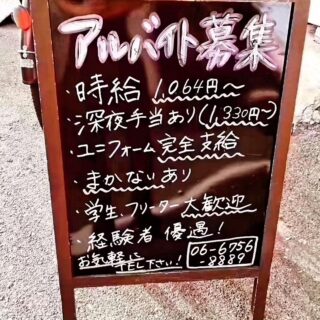 アルバイト募集
・時給 1,064円〜
・深夜手当あり(1,330円〜)
・ユニフォーム完全支給
・まかないあり
・学生、フリーター大歓迎
・経験者 優遇!
お気軽に
下さい!
06-6756
-8889